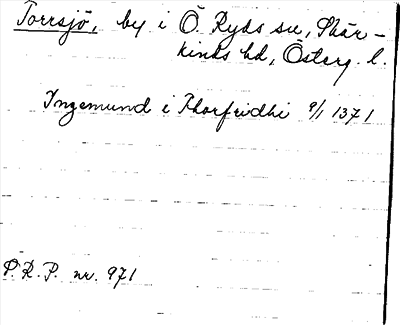 Torrsjö, by i Ö. Ryds sn, Skär-
kinds hd, Österg. l.
Ingemund i Thorfridhi 9/1 1371
P. R. P. nr. 971